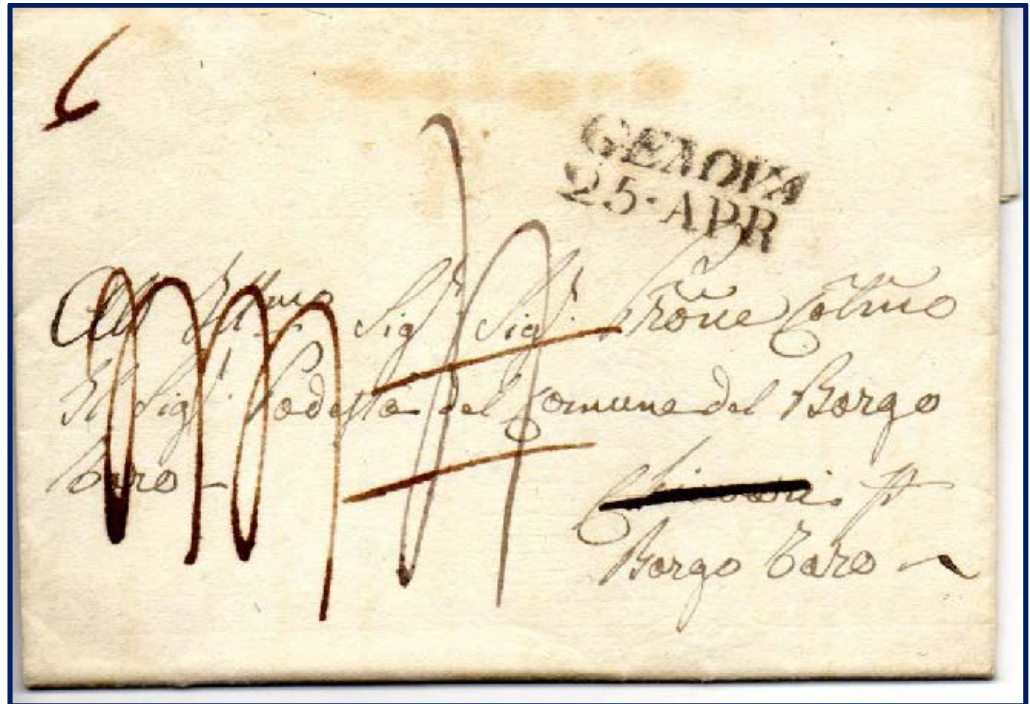 6
GENOVA
25·APR
All Illmo Sigr Sigr Prōne Colmo
Il Sigr Podestà del Comune del Borgo
Taro –
Chiavari pr
Borgo Taro –